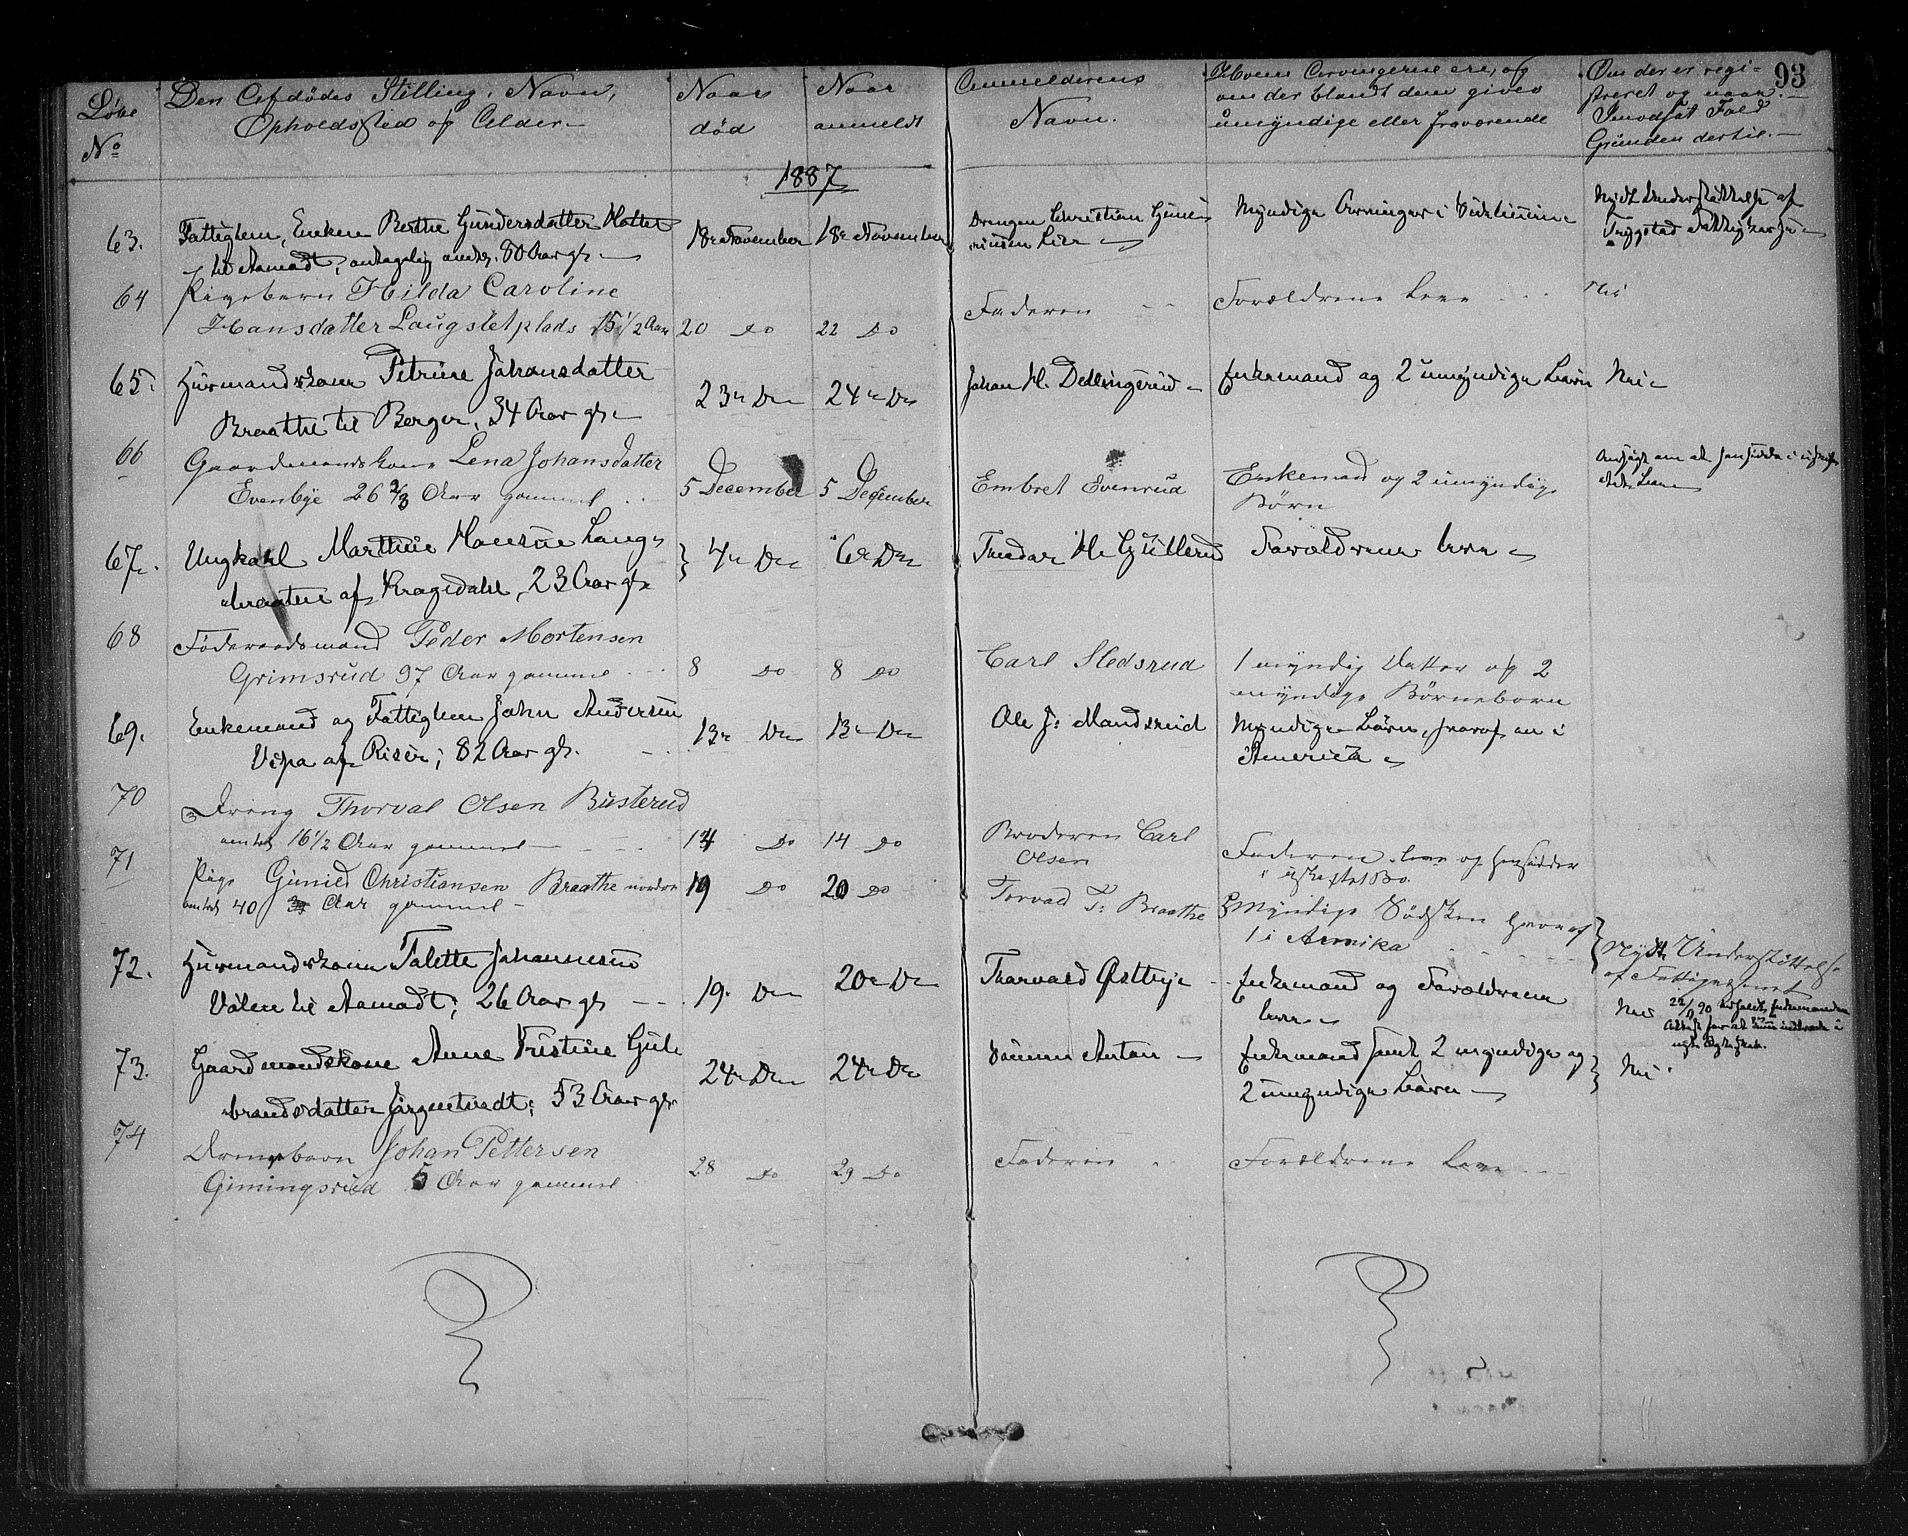 93
Løbe
No
Den Afdødes Stilling, Navn,
Opholdssted og Alder.
Naar
død
Naar
anmeldt
Anmelderens
Navn.
Hvem Arvingerne ere, og
om der blandt dem gives
umyndige eller fraværende
Om der er regi-
streret og naar.
I modsat Fald
Grunden dertil.
1887
63.
Fattiglem, Enken Berthe Gundersdatter
til Aamodt, antagelig omtr. 80 Aar gl.
18de November
18de November
Drengen Christian
Lier
Myndige Arvinger i
Nydt Understøttelse af
Trygstad Fattigkasse
64
Pigebarn Hilda Caroline
Hansdatter Laugsletplads 15 1/2 Aar
20 Do
22 Do
Faderen
Forældrene leve
Nei
65.
Husmandskone Petrine Johansdatter
Braathe til Berger, 34 Aar gl.
23de Do
24de Do
Johan H. Dellingsrud
Enkemand og 2 umyndige Børn
Nei
66
Gaardmandskone Lena Johansdatter
Evenbye 26 2/3 Aar gammel
5 December
5 December
Embret Evenrud
Enkemand og 2 umyndige
Børn
Ansøgt om at hensidde i uskif-
tet Bo
67.
Ungkarl Marthin Hansen Laug-
braaten af Kragsdahl, 23 Aar gl.
4de Do
6te Do
H. Gullerud
Forældrene leve
68
Føderaadsmand Peder Mortensen
Grimsrud 97 Aar gammel
8 Do
8 Do
Carl Sledsrud
1 myndig Datter og 2
myndige Børnebørn
69.
Enkemand og Fattiglem John Andersen
af Riser; 82 Aar gl.
13de Do
13de Do
Ole J: Mandsrud
Myndige Børn, hvoraf en i
America
70
Dreng Thorval Olsen Busterud
omtrt 16 1/2 Aar gammel
14 Do
14 Do
Broderen Carl
Olsen
Faderen leve og hensidder
i uskiftet Bo.
71
Pige Gunild Christiansen Braathe nordre
omtrt 40 Aar gammel
19 Do
20 Do
Torvad T: Braathe
3 Myndige Sødsken hvoraf
1 i Amrika
Nydt Understøttelse
af Fattigvesenet
72.
Husmandskone Talette Johannesen
Vølen til Aamodt; 26 Aar gl.
19. Do
20de Do
Thorvald Østbye
Enkemand og Forældrene
leve
Nei 22/9 90 Enkemanden
Attest for at indtræde i
nyt Ægteskab.
73.
Gaardmandskone Anne Kristine Gul-
brandsdatter Jørgentvedt; 53 Aar gl.
24de Do
24de Do
Sønnen Anton
Enkemand samt 2 myndige og
2 umyndige Børn
Nei
74
Drengebarn Johan Pettersen
Gimingsrud 5 Aar gammel
28 Do
29 Do
Faderen
Forældrene leve